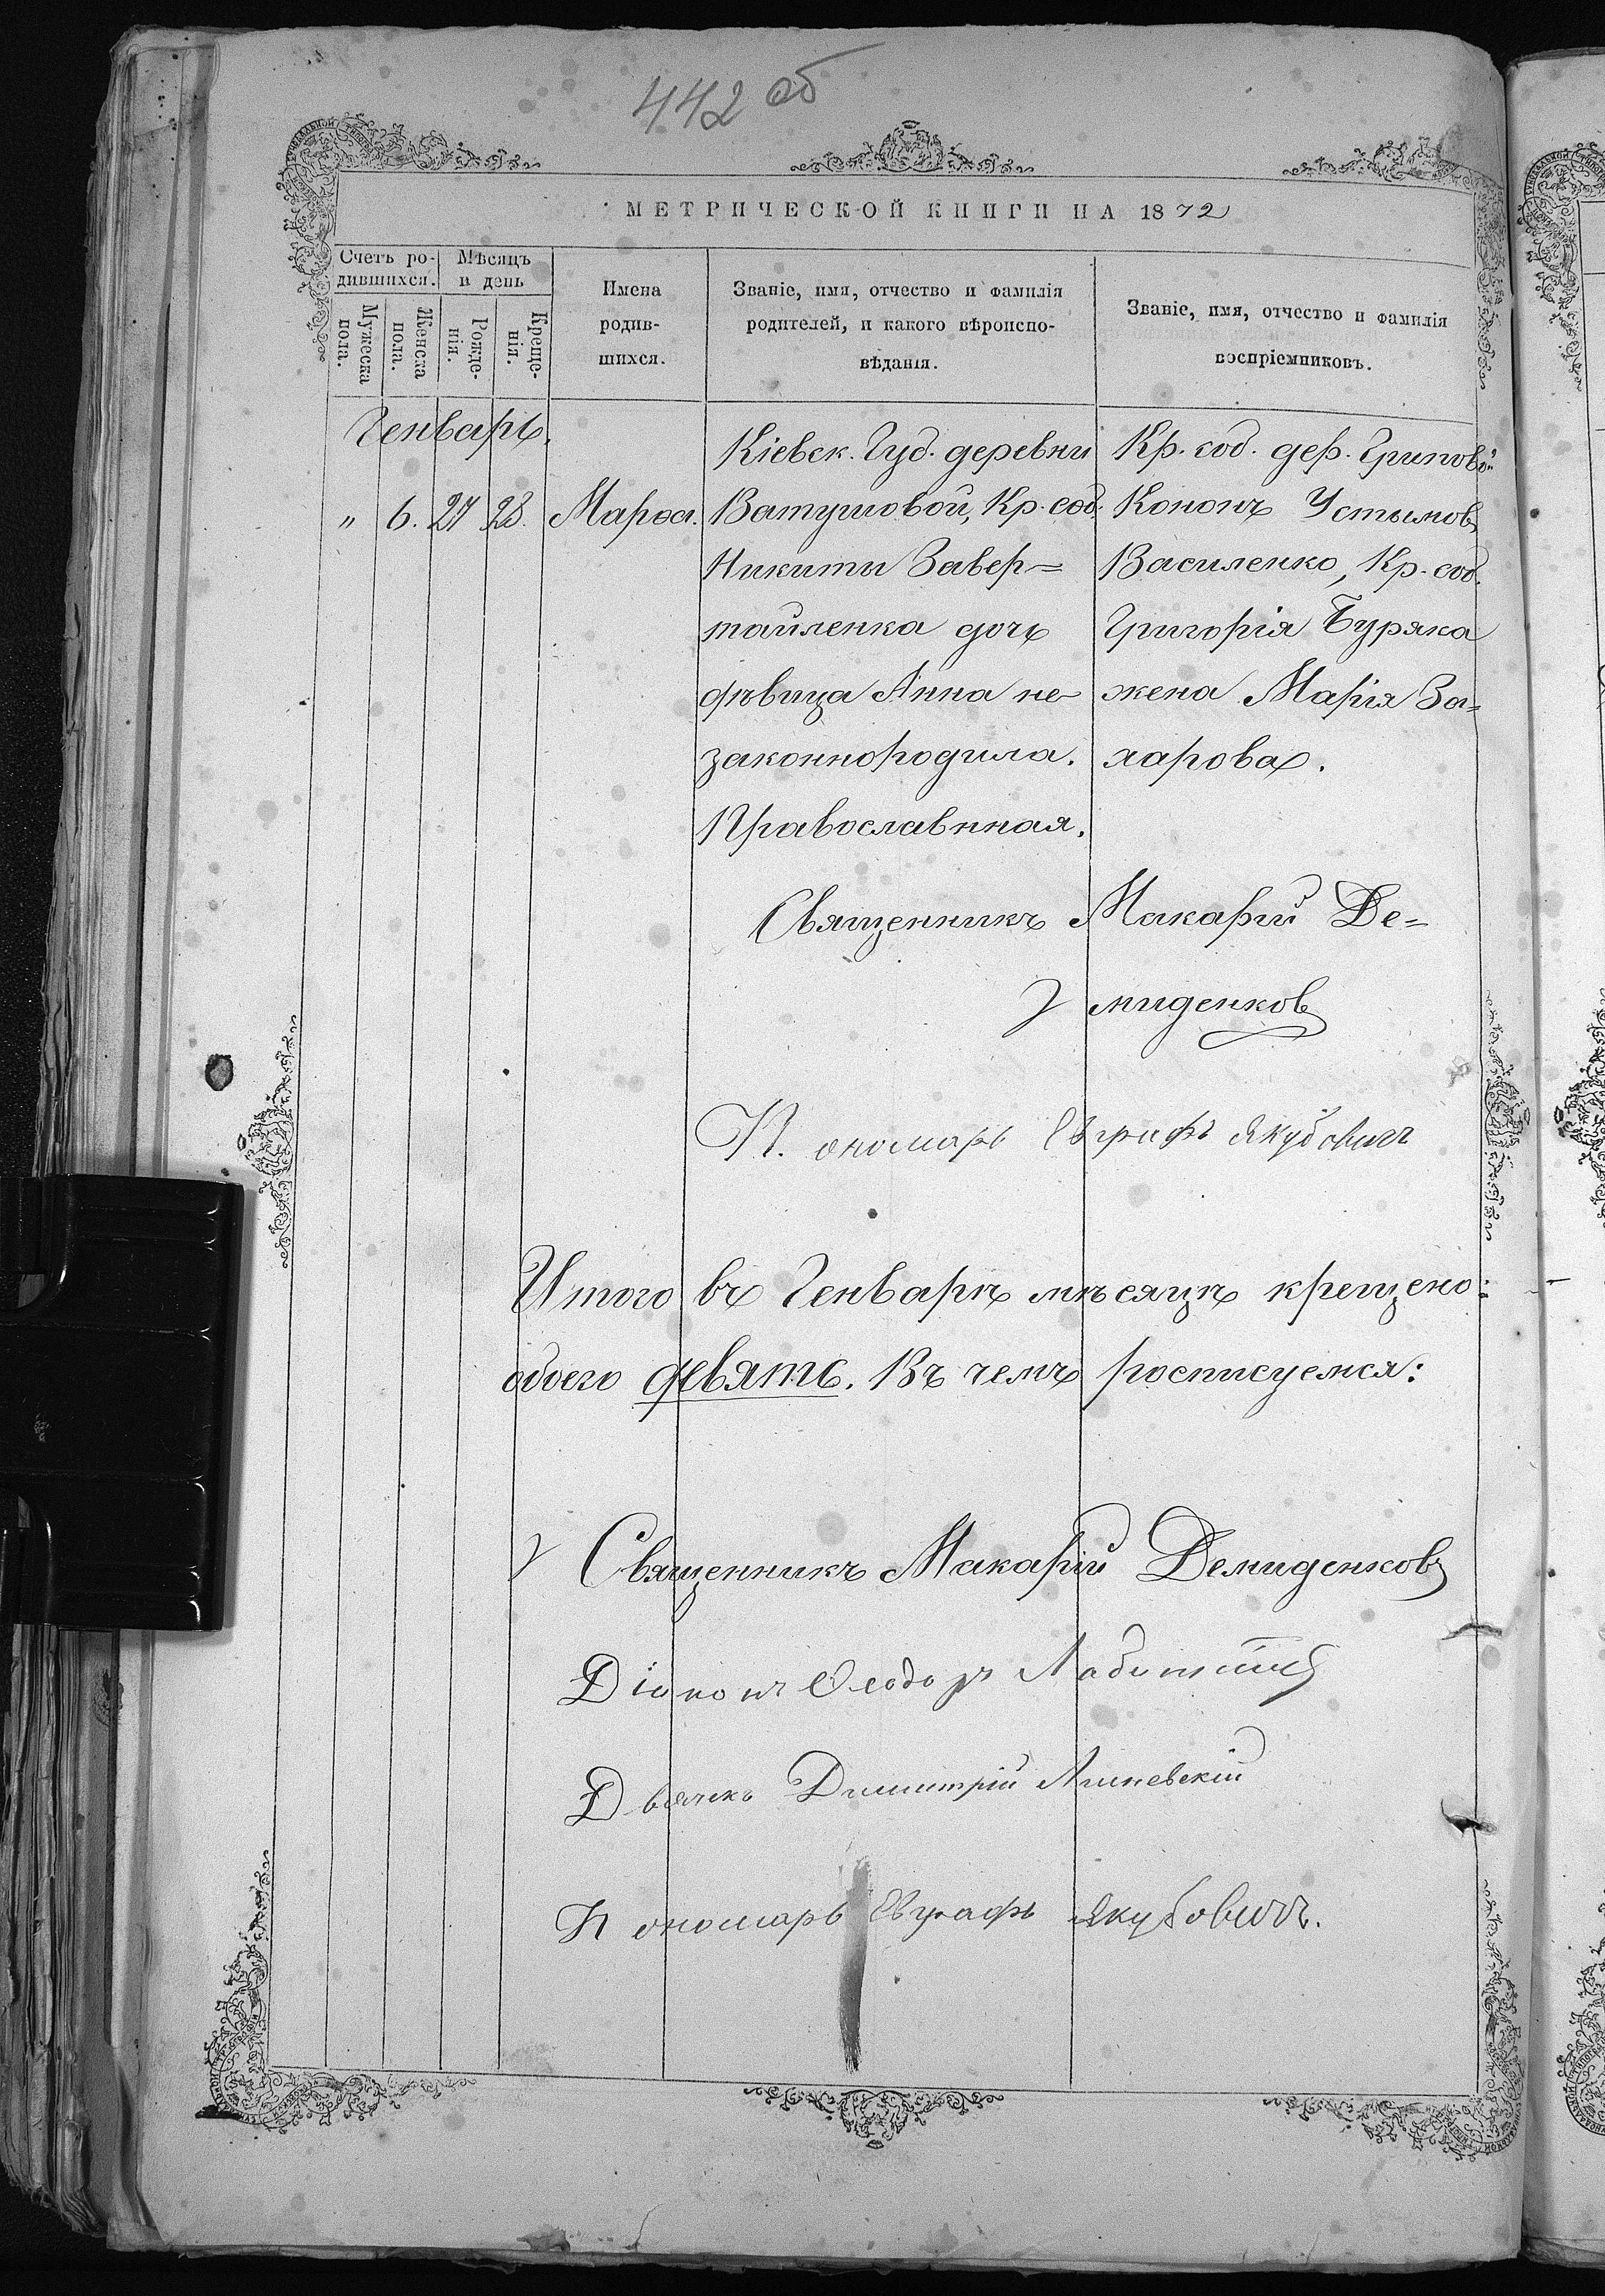 442 об
МЕТРИЧЕСКОЙ КНИГИ НА 1872
Счетъ ро-
дившихся.
Мѣсяцъ
и день
Мужеска
пола.
Женска
пола.
Рожде-
нія.
Креще-
нія.
Имена
родив-
шихся.
Званіе, имя, отчество и фамилія
родителей, и какого вѣроиспо-
вѣданія.
Званіе, имя, отчество и фамилія
воспріемниковъ.
Генварь.
" 6. 27 28. Марѳа.
Кіевск. Губ. деревни
Ватушовой, Кр. соб.
Никиты Завер=
тайленка дочь
дѣвица Анна не-
законнородила.
Православнная.
Кр. соб. дер. Гриповой
Кононъ Устымовъ
Василенко, Кр. соб.
Григорія Буряка
жена Марія За=
харова.
Священникъ Макарій Де=
миденковъ
Пономарь Евграфъ Якубовичъ
Итого въ Генварѣ мѣсяцѣ крещено:
обоего девять. Въ чемъ росписуемся:
Священникъ Макарій Демиденковъ
Діаконъ Ѳеодоръ
Дьячекъ Димитрій Яшневскій
Пономарь Евграфъ Якубовичъ.